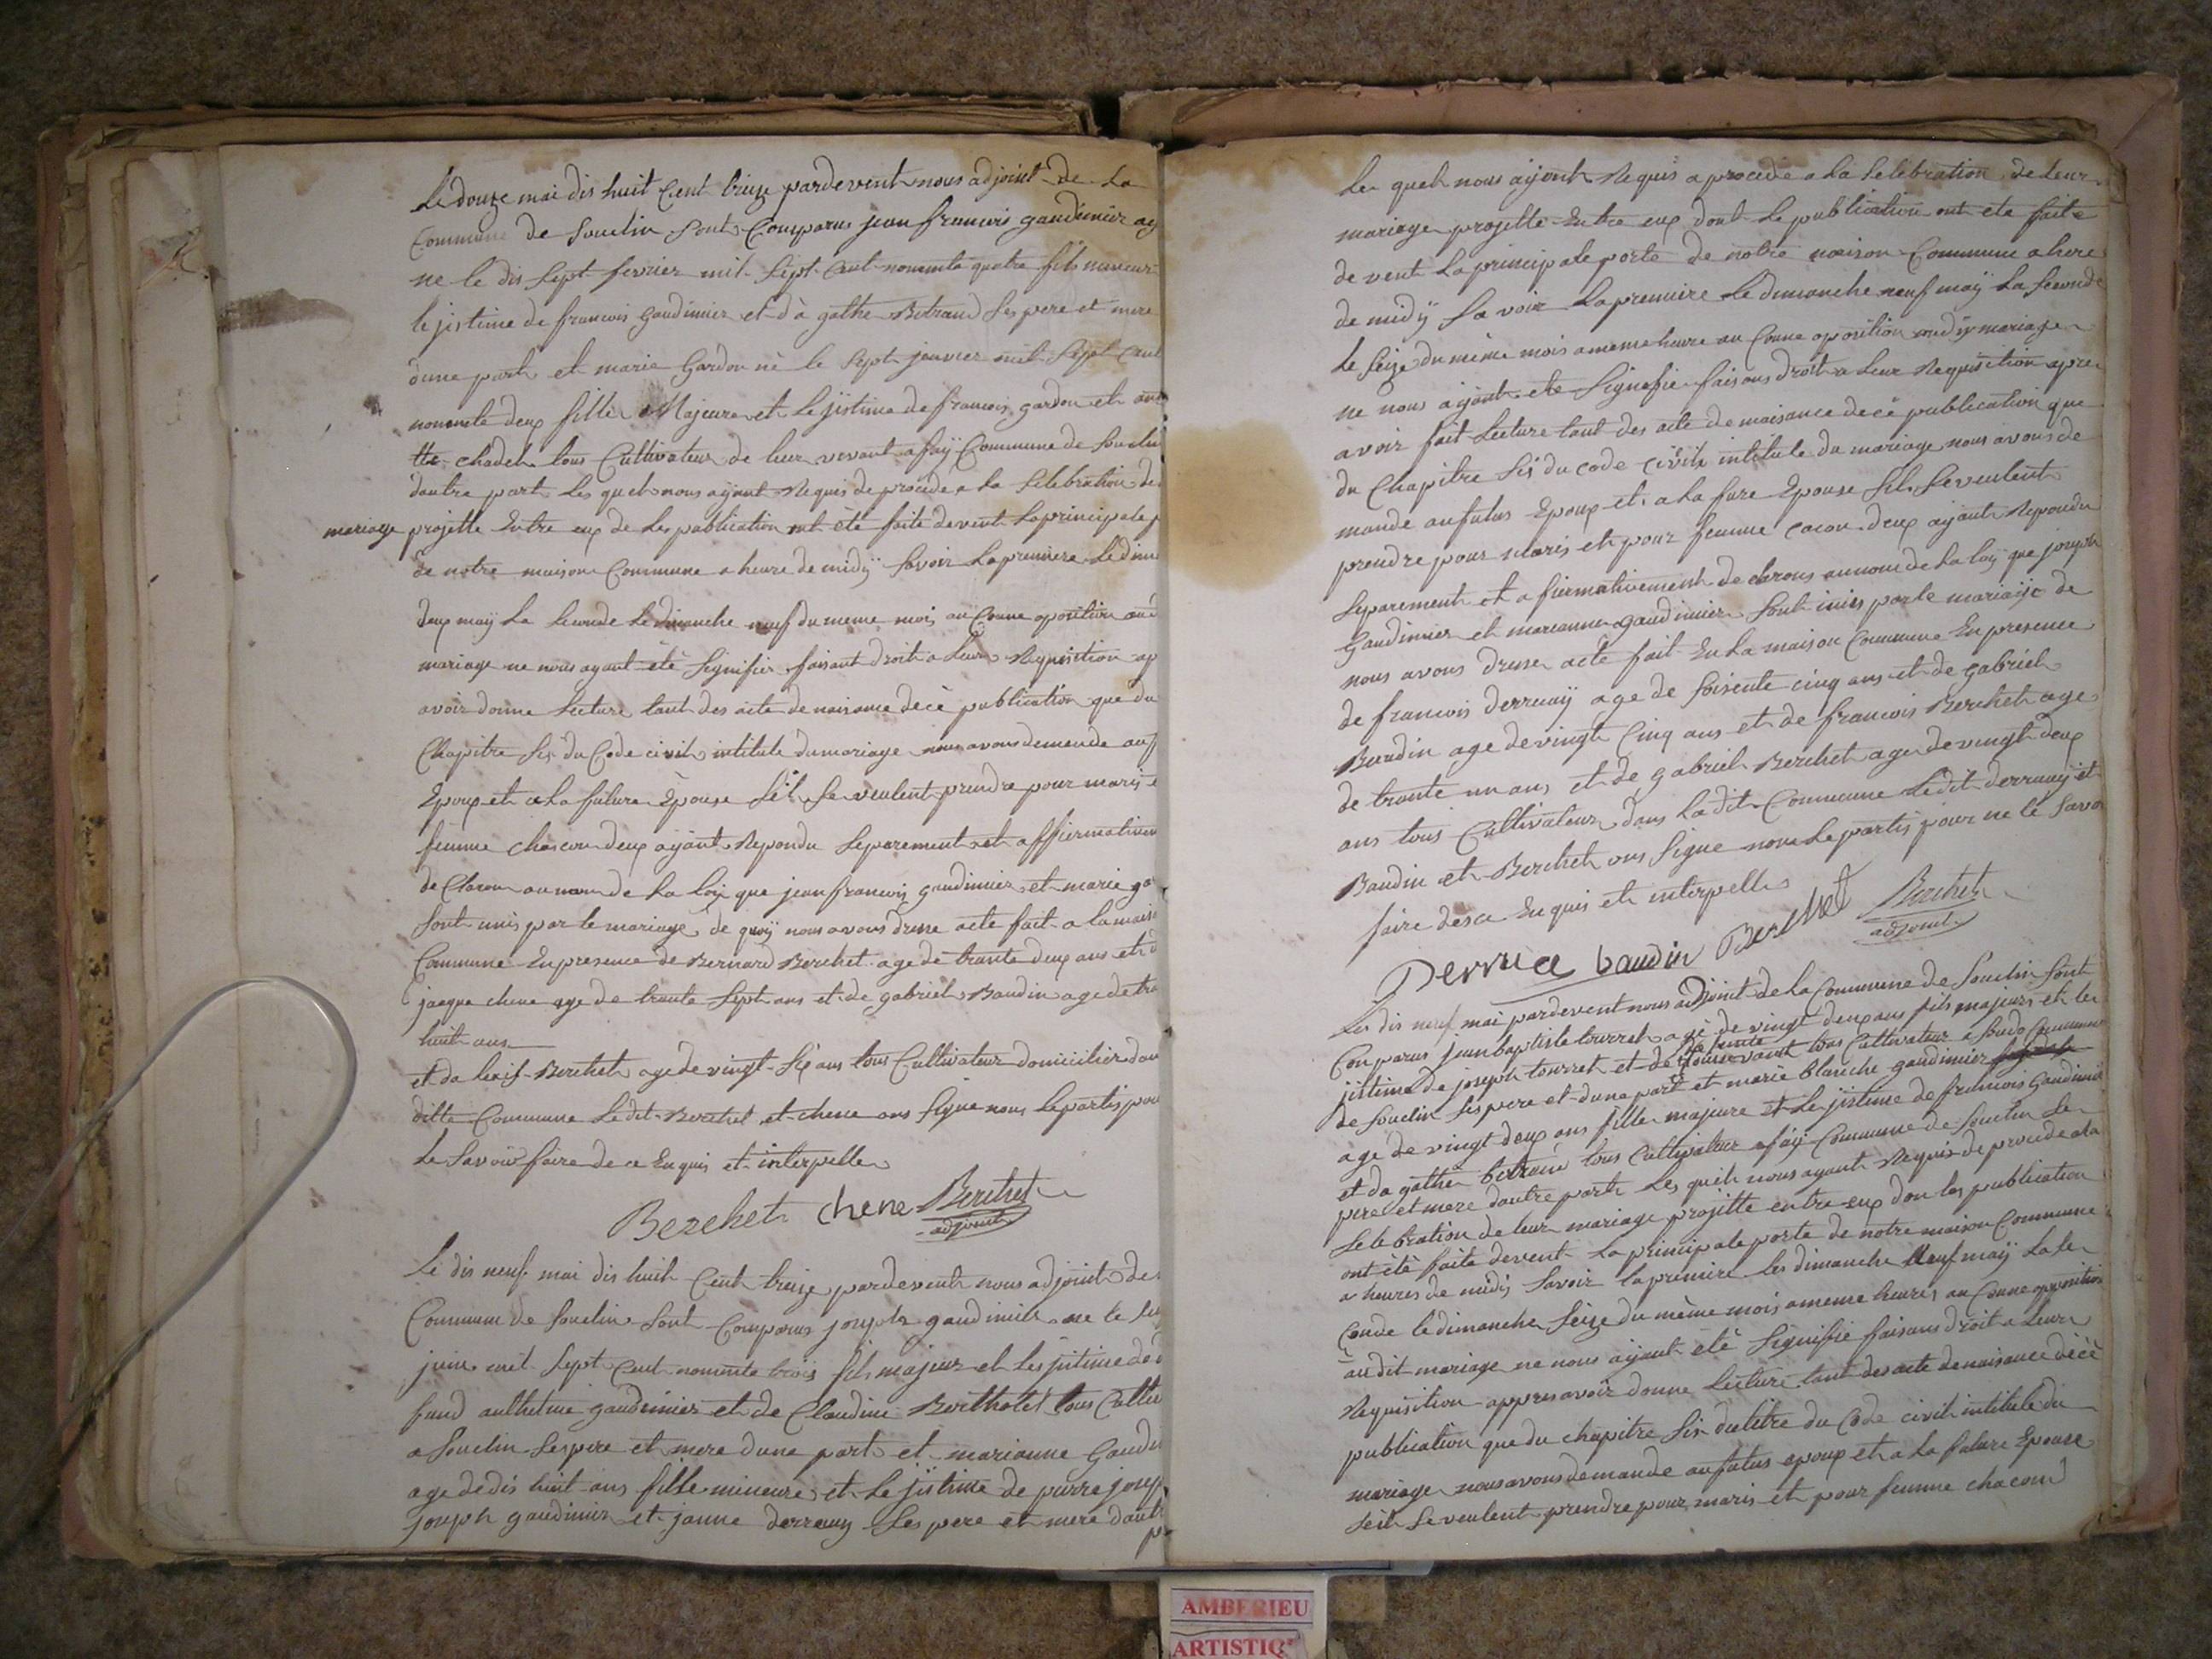 Le douze mai dis huit Cent treize pardevent nous adjoint de La
Commune de Souclin sont Comparus jean francois gaudinier ag
ne le dis Sept fevrier mil Sept Cent nonente quatre fils mineur
lejistime de francois Gaudinier et d'à gathe Betrand Ses pere et mere
dune part et marie Gardon né le Sept janvier mil Sept Cent
nonente deux fille Majeure et Lejistime de francois gardon et ant
tte chadel tous Cultivateur de leur vivant a faÿ Commune de Souclin
dautre part Les quels nous aÿant Requis de procede a La Selebration de
mariage projette Entre eux de Les publication ont été faite devent La principale p
de notre maison Commune a heure de midÿ Savoir La premiere Le dim
deux maÿ La Seconde Le dimanche neuf du meme mois au Coune oposition aud
mariage ne nous ayant été Signifier faisant droit a Leur Requisition ap
avoir donne Lecture tant des acte de naisance décè publication que du
Chapitre Six du Code civil intitule du mariage nous avons demande au f
Epoux et a La future Epouse Sel Se veulent prendre pour maris e
femme chacun deux aÿant Repondu Separement et affiermativem
de Claron au nom de La Loÿ que jean francois gaudinier et marie ga
sont unis par le mariage de quoÿ nous avons dresse acte fait a la mais
Commune En presence de Bernard Berchet age de trante deux ans et d
jacque chene age de trante Sept ans et de gabriel Baudin age de tra
huit ans
et da Lexis Berchet age de vingt Six ans tous Cultivateur domicilier dan
ditte Commune Ledit Berchet et chene ons Signe nous Le partis pou
Le Savoir faire de ce Enquis et interpelle
Berchet chene Berchet
adjoint
Le dis neuf mai dis huit Cent treize pardevent nous adjoint de
Commune de Souclin Sont Comparus joseph gaudinier ne le Sep
juin mil Sept Cent nonente trois fils majeur et Lesjitime de
fund anthelme gaudinier et de Claudine Berthotet tous Culti
a Souclin Ses pere et mere dune part et marianne Gaudi
age de dis huit ans fille mineure et Lejistime de pierre josep
joseph gaudinier et janne derrauy Ses pere et mere dautr
p
Les quels nous aÿent Requis a procede a La Selebration de Leur
mariage projette Entre eux dont Le publication ont ete faite
devent La principale porte de notre maison Commune a hure
de midÿ Savoir La premiere Le dimanche neuf maÿ La Seconde
Le Seize du même mois a meme heure au Coune oposition audis mariage
ne nous aÿant ete Signefie faisons droit a Leur Requisition apre
avoir fait Lecture tant des acte de naisance decè publication que
du Chapitre Sis du code civile intitule du mariage nous avons de
mande au futus Epoux et a La fure Epouse Sils Se veulent
prendre pour maris et pour femme cacun deux aÿant Repondu
Separement et a fiermativement de clarons au nom de La Loÿ que joseph
Gaudinier et marianne gaudinier Sont unis par le mariage de
nous avons drese acte fait En La maison Commune En presence
de francois derruaÿ age de Soisente cinq ans et de gabriel
Baudin age de vingt Cinq ans et de francois Berchet age
de trante un ans et de gabriel Berchet age de vingt deux
ans tous Cultivateur dans La dit Commune Ledit derruay et
Baudin et Berchet ons Signe non Le partis pour ne le Savo
faire desce Enquis et interpelle
Derrua baudin Berchet Berchet
adjoint
Les dis neuf mai pardevent nous adjoint de La Commune de Souclin Sont
Conparus jean baptiste tourret age de vingt deux ans fils majeurs et Le
jistime de joseph tourret et de Louise vount tous Cultivateur a Soudo Commune
de Souclin Ses pere et dune part et marie blanche gaudinier
age de vingt deux ans fille majeure et Le jistime de francois Gaudinie
et da gathe betrand tous Cultivateur a faÿ Commune de Souclin Se
pere et mere dautre part Les quels nous ayant Requis de procede a La
Selebration de leur mariage projette entre eux don les publication
ont été faite devent La principale porte de notre maison Commune
a heures de midÿ Savoir La premiere Les dimanche Neuf maÿ La Se
Conde le dimanche Seize du même mois a meme heures au Coune oposition
audit mariage ne nous aÿant été Signifie faisans droit a Leur
Requisition appres avoir donne Lecture tant des acte de naisance décè
publication que du chapitre Six du titre du Code civil intitule du
mariage nous avons demande au futus epoux et a La future Epouse
Seil Se veulent prendre pour maris et pour femme chacun
AMBERIEU
ARTISTIQ